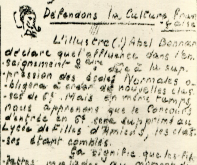 Défendons la Culture Fran-
çaise
L'illustre(!) Abel Bonnard
déclare que l'affluence dans l'en-
seignement 2aire dûe à la sup-
pression des écoles Normales o-
bligera à créer de nouvelles clas-
ses de 6e. Mais en même temps
nous apprenons que le Concours
d'entrée en 6e sera supprimé au
Lycée de Filles d'Amiens, les clas-
ses étant combles.
signifie que les fil-